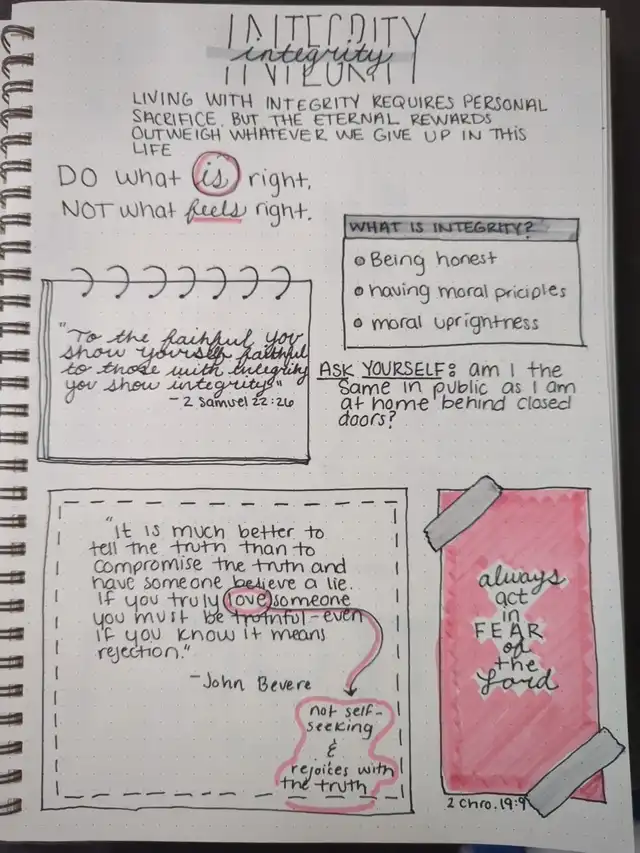 INTEGRITY
integrity
LIVING WITH INTEGRITY REQUIRES PERSONAL
SACRIFICE, BUT THE ETERNAL REWARDS
OUTWEIGH WHATEVER WE GIVE UP IN THIS
LIFE
DO what is right,
NOT what feels right.
WHAT IS INTEGRITY?
Being honest
having moral priciples
moral uprightness
"To the faithful you
show yourself faithful
to those with integrity
you show integrity"
- 2 Samuel 22:26
ASK YOURSELF: am I the
same in public as I am
at home behind closed
doors?
"It is much better to
tell the truth than to
compromise the truth and
have someone believe a lie.
If you truly love someone
you must be truthful-even
if you know it means
rejection."
-John Bevere
not self-
seeking
&
rejoices with
the truth
always
act
in
FEAR
of
the
Lord
2 Chro. 19:9